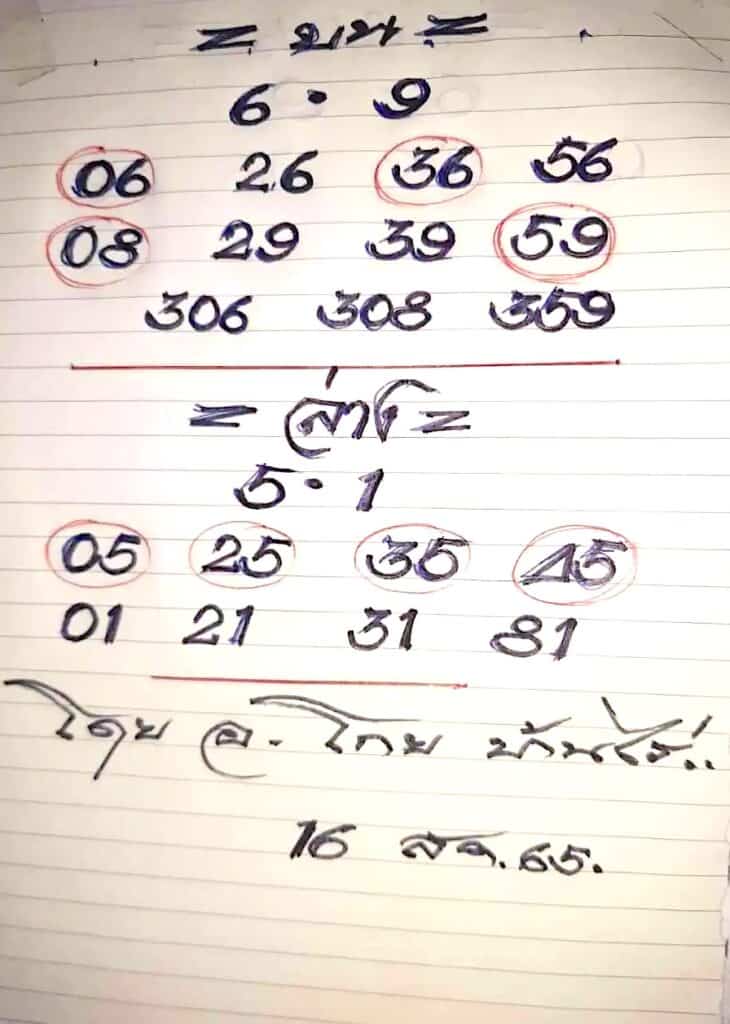 = บน =
6 · 9
06 26 36 56
08 29 39 59
306 308 359
= ล่าง =
5 · 1
05 25 35 45
01 21 31 81
โดย อ. โทย บ้านไร่..
16 สค. 65.